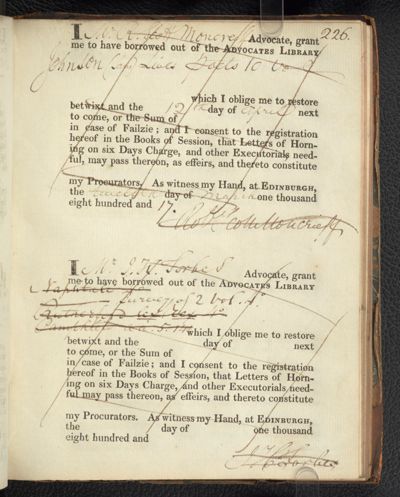 226.
I Mr Moncreiff Advocate, grant
me to have borrowed out of the ADVOCATES LIBRARY
Johnson Lives Poets 10 vol
which I oblige me to restore
betwixt and the 12th day of April next
to come, or the Sum of
in case of Failzie; and I consent to the registration
hereof in the Books of Session, that Letters of Horn-
ing on six Days Charge, and other Executorials need-
ful, may pass thereon, as effeirs, and thereto constitute
my Procurators. As witness my Hand, at EDINBURGH,
the day of March one thousand
eight hundred and 17.
Moncreiff
I Mr J. H. Forbes Advocate, grant
me to have borrowed out of the ADVOCATES LIBRARY
Survey of 2 vol.
which I oblige me to restore
betwixt and the day of next
to come, or the Sum of
in case of Failzie; and I consent to the registration
hereof in the Books of Session, that Letters of Horn-
ing on six Days Charge, and other Executorials need-
ful may pass thereon, as effeirs, and thereto constitute
my Procurators. As witness my Hand, at EDINBURGH,
the day of one thousand
eight hundred and
J H Forbes